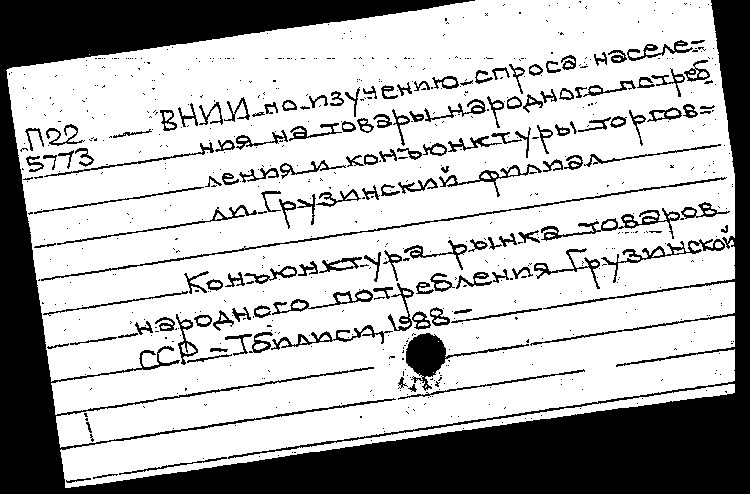 П22 ВНИИ по изучению спроса населе-
5773 ния на товары народного потреб
ления и конъюнктуры торгов-
ли. Грузинский филиал
Конъюнктура рынка товаров
народного потребления Грузинской
ССР - Тбилиси, 1988-